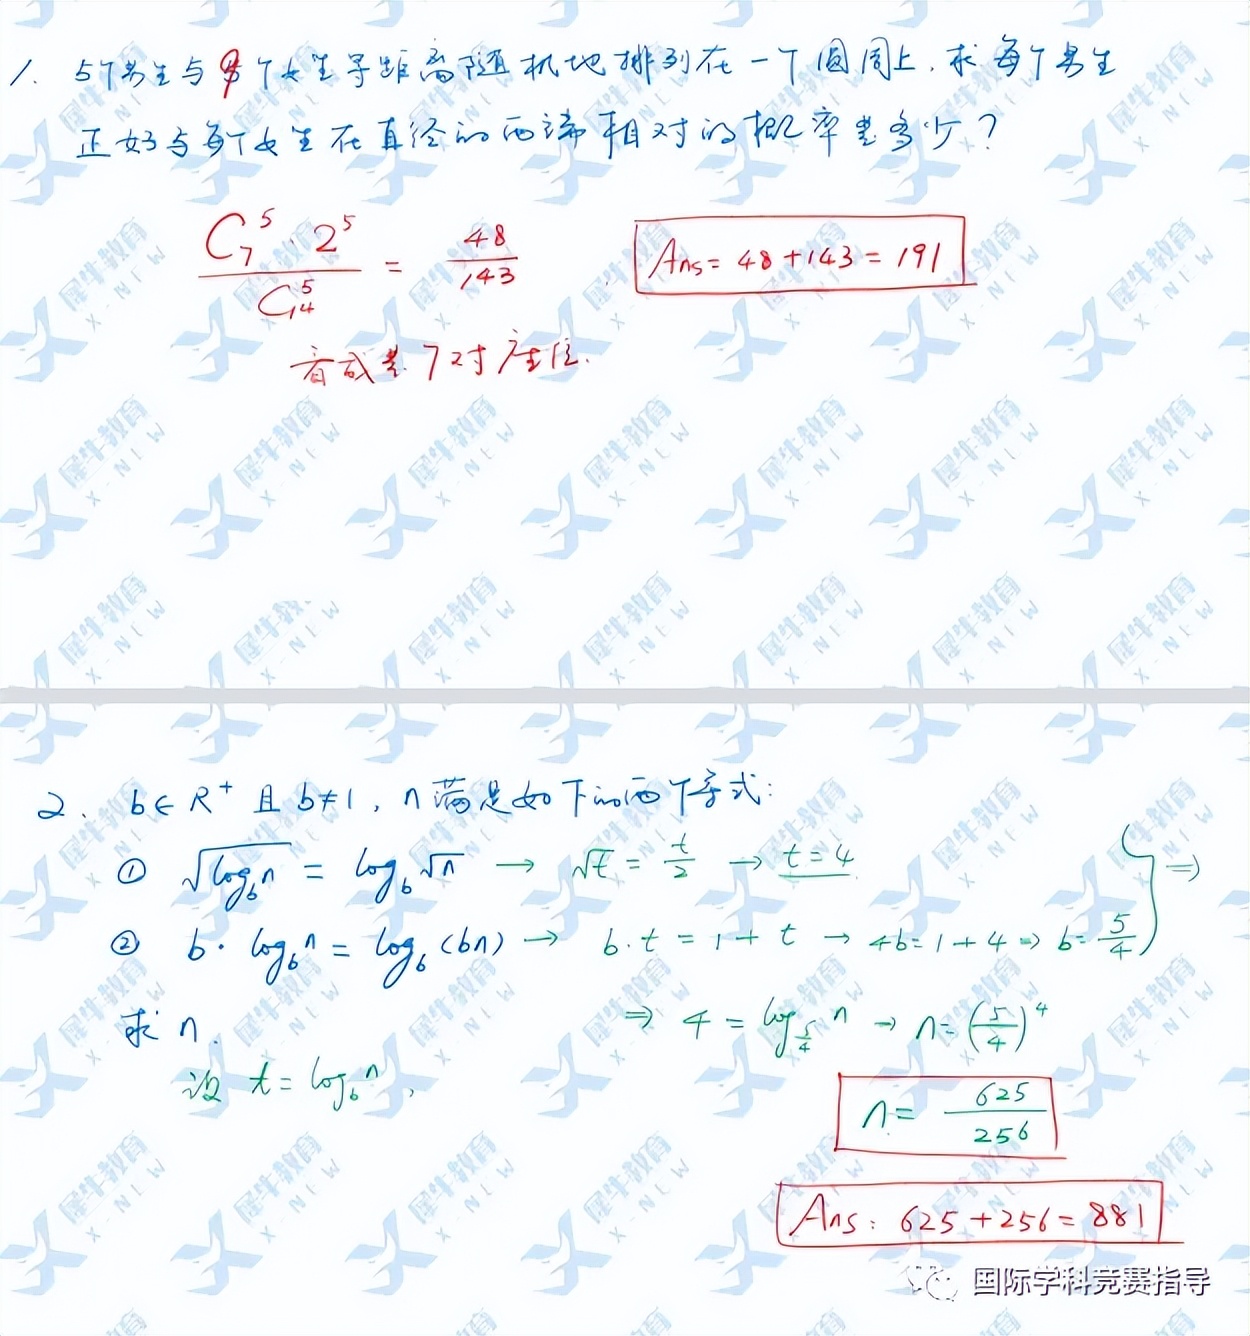 1. 5个男生与9个女生等距离随机地排列在一个圆周上,求每个男生
正好与每个女生在直径的两端相对的概率是多少?
C₇⁵·2⁵ / C₁₄⁵ = 48/143
Ans = 48+143 = 191
看成是7对座位.
2. b∈R⁺ 且 b≠1, n满足如下的两个等式:
① √(log_b n) = log_b √n → √t = t/2 → t=4
② b·log_b n = log_b (bn) → b·t = 1+t → 4b=1+4 ⇒ b=5/4 } ⇒
求 n.
⇒ 4 = log_{5/4} n → n=(5/4)⁴
设 t = log_b n,
n = 625/256
Ans: 625+256=881
国际学科竞赛指导
犀牛教育
X-NEW